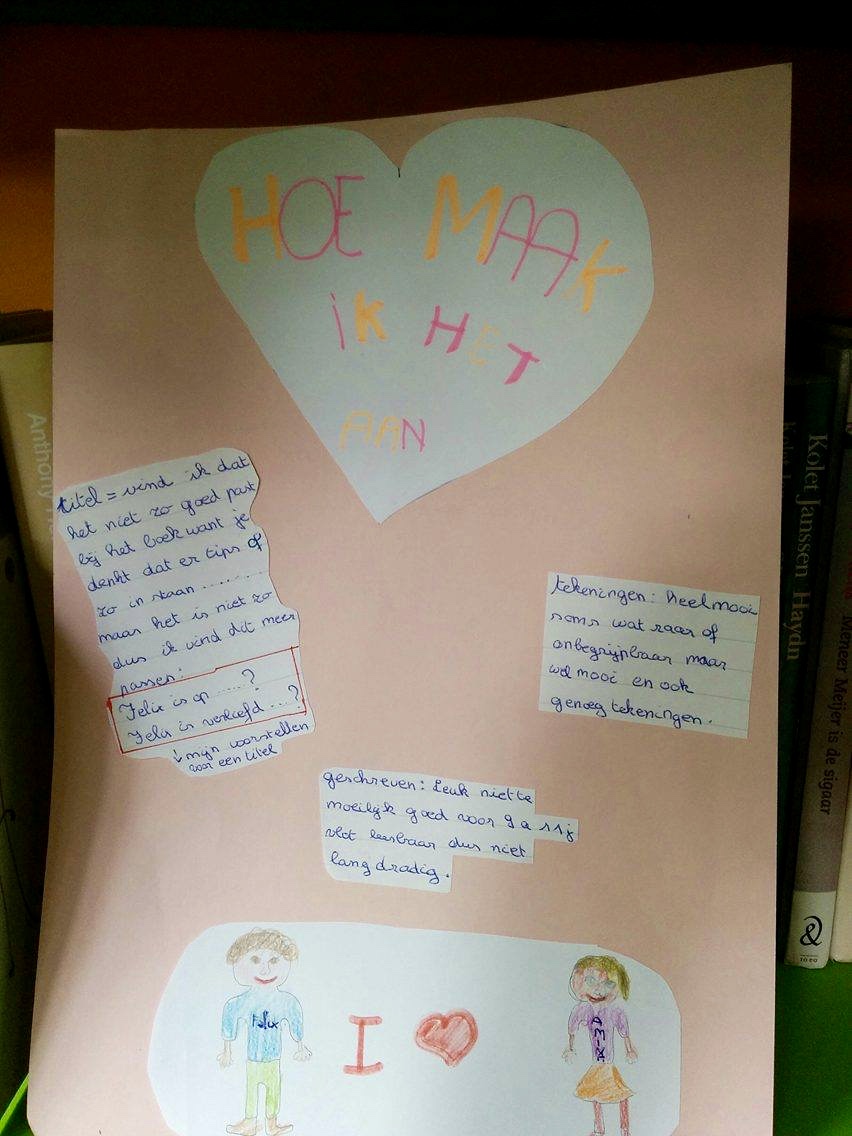 HOE MAAK
iK HET
AAN
titel = vind ik dat
het niet zo goed past
bij het boek want je
denkt dat er tips of
zo in staan ........
maar het is niet zo
dus ik vind dit meer
passen:
Felix is op .....?
Felix is verliefd ...?
↓ mijn voorstellen
voor een titel
tekeningen: heel mooi
soms wat raar of
onbegrijpbaar maar
wel mooi en ook
genoeg tekeningen.
geschreven: Leuk niet te
moeilijk goed voor 9 a 11j
vlot leesbaar dus niet
lang dradig.
Felix
I
AMINA
Anthony
Kolet Janssen Haydn
Meneer Meijer is de sigaar
&